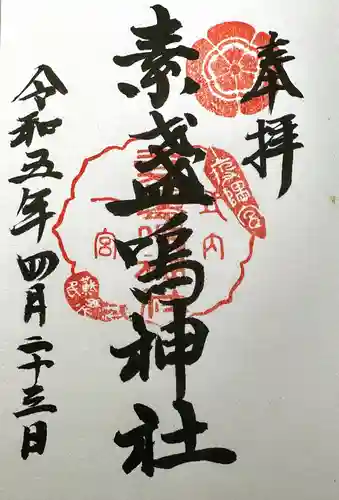 奉拝
素盞嗚神社
令和五年四月二十三日
一宮